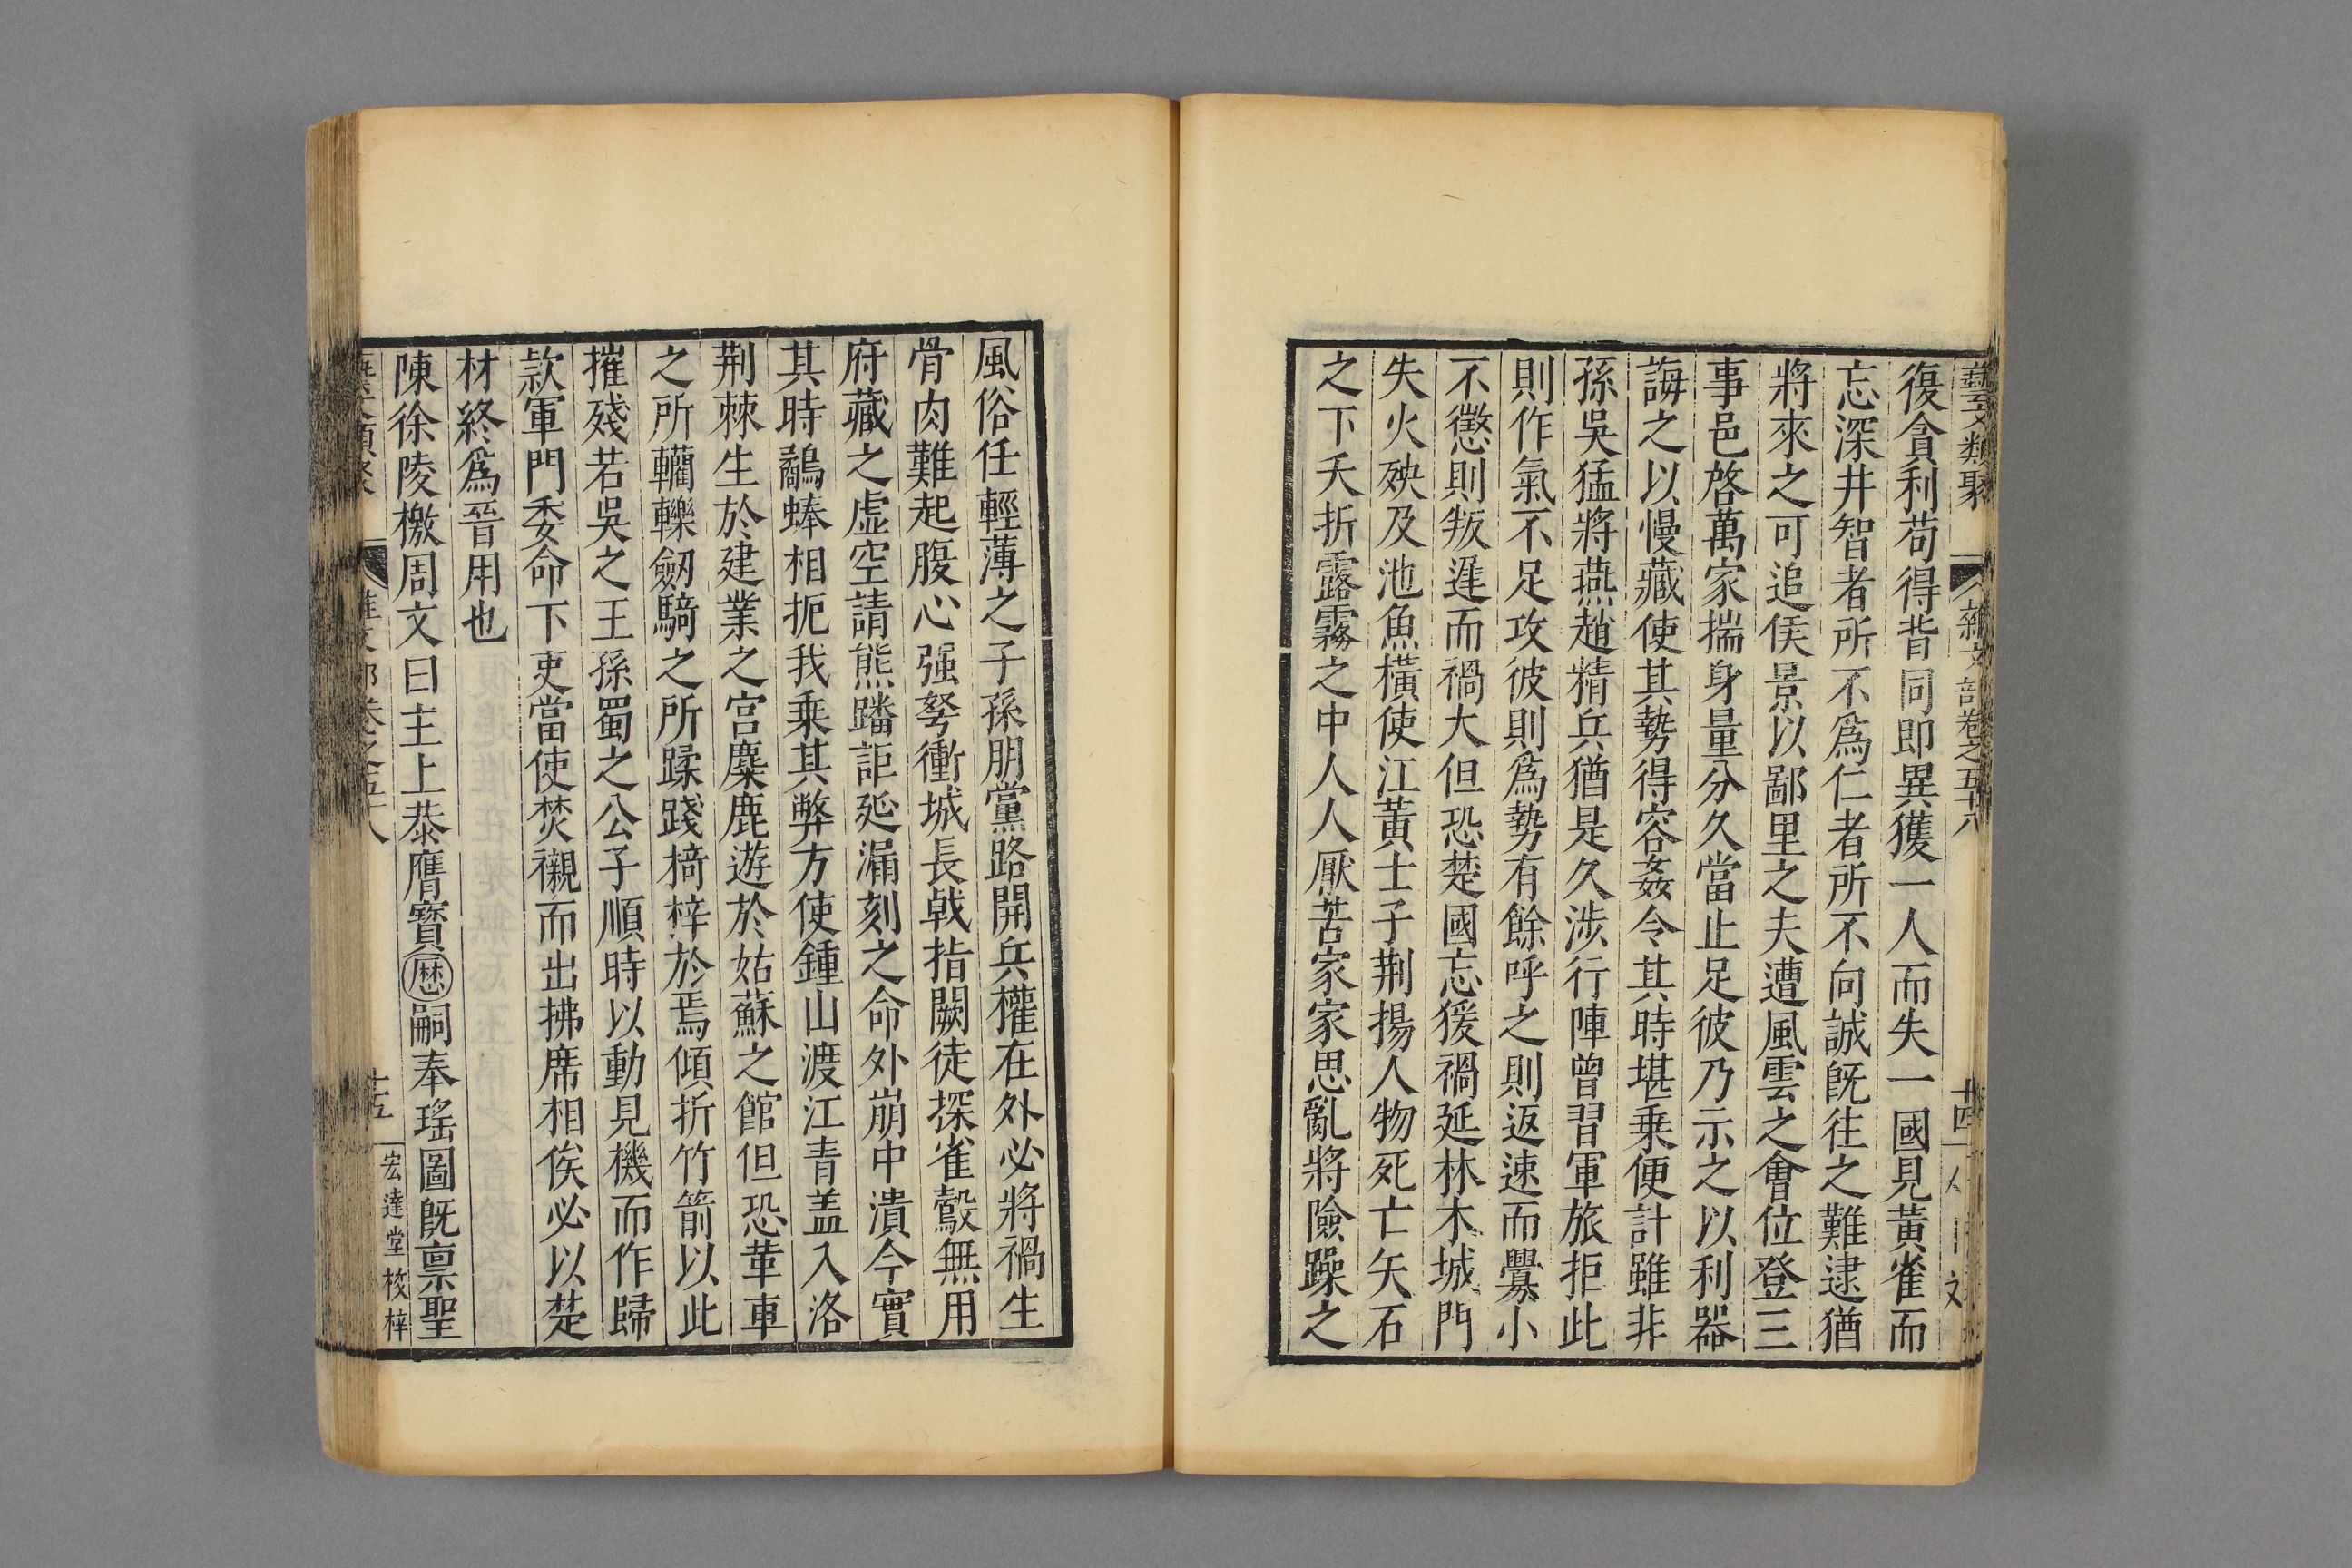 藝文類聚 雜文部卷之五十八 十四
復貪利苟得背同即異獲一人而失一國見黃雀而
忘深井智者所不爲仁者所不向誠旣往之難逮猶
將來之可追侯景以鄙里之夫遭風雲之會位登三
事邑啓萬家揣身量分久當止足彼乃示之以利器
誨之以慢藏使其勢得容姦令其時堪乗便計雖非
孫吳猛將燕趙精兵猶是久涉行陣曾習軍旅拒此
則作氣不足攻彼則爲勢有餘呼之則返速而釁小
不懲則叛遲而禍大但恐楚國忘猨禍延林木城門
失火殃及池魚橫使江黃士子荆揚人物死亡矢石
之下夭折露霧之中人人厭苦家家思亂將險躁之
風俗任輕薄之子孫朋黨路開兵權在外必將禍生
骨肉難起腹心强弩衝城長戟指闕徒探雀鷇無用
府藏之虛空請熊蹯詎延漏刻之命外崩中潰今實
其時鷸蜯相扼我乗其弊方使鍾山渡江青盖入洛
荆棘生於建業之宫麋鹿遊於姑蘇之館但恐革車
之所轥轢劒騎之所蹂踐㨿梓於焉傾折竹箭以此
摧殘若吳之王孫蜀之公子順時以動見機而作歸
款軍門委命下吏當使焚櫬而出拂席相俟必以楚
材終爲晉用也
陳徐陵檄周文曰主上恭膺寳曆嗣奉瑤圖旣禀聖
卷之五十八 十五 宏達堂校梓